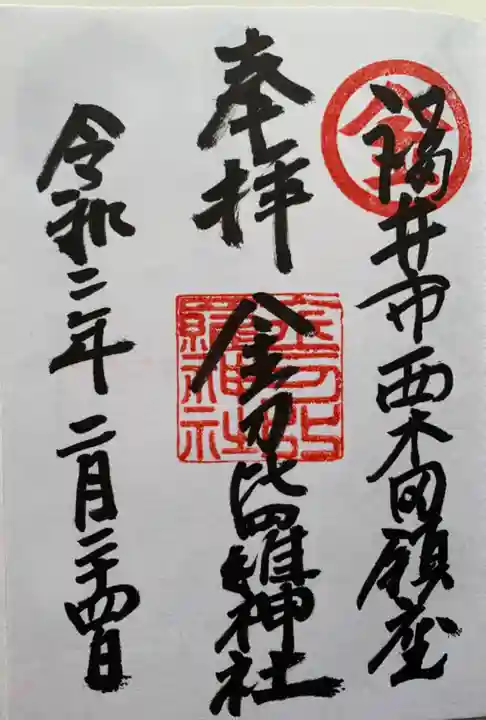 福井市西木田鎮座
奉拝
金刀比羅神社
令和二年二月二十四日
金
金刀比羅神社